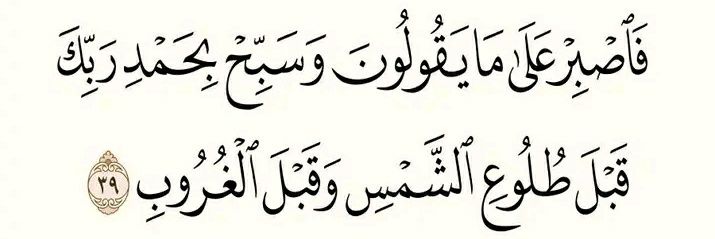 فَٱصْبِرْ عَلَىٰ مَا يَقُولُونَ وَسَبِّحْ بِحَمْدِ رَبِّكَ
قَبْلَ طُلُوعِ ٱلشَّمْسِ وَقَبْلَ ٱلْغُرُوبِ ٣٩